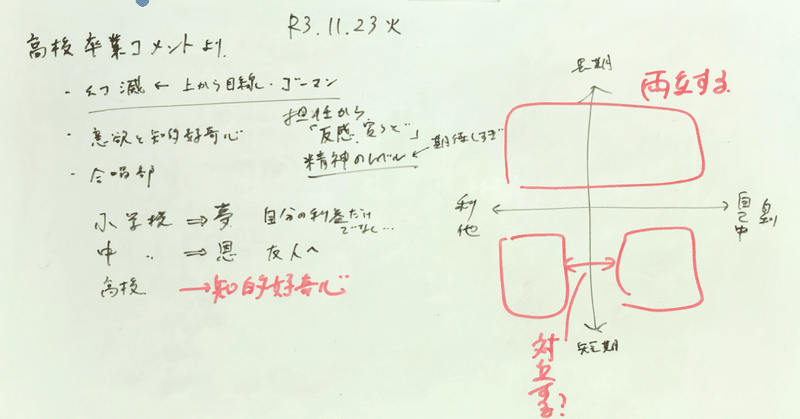 R3.11.23火
高校卒業コメントより
・幻滅 ← 上から目線・ゴーマン
担任から
「反感、官うと"」
・意欲と知的好奇心
精神のレベル ← 期待しすぎ
・合唱部
小学校 ⇒ 夢 自分の利益だけでなく…
中 〃 ⇒ 恩 友人へ
高校 → 知的好奇心
長期
両立する
利他
自己中
短期
対立する?